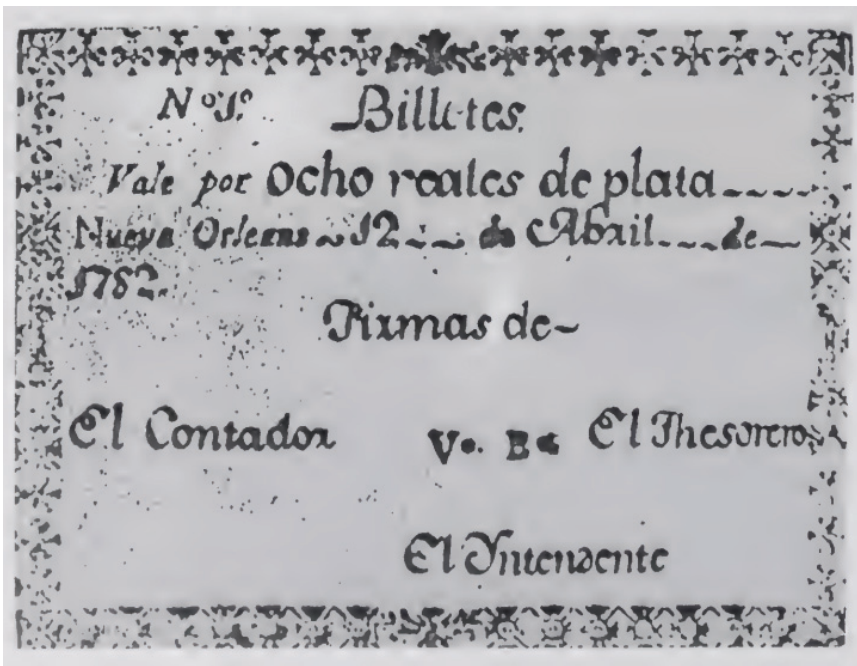 Nº 1º Billetes.
Vale por Ocho reales de plata
Nueva Orleans 12 de Abril de
1782.
Firmas de
El Contador Vo. Bo El Thesorero
El Yntendente